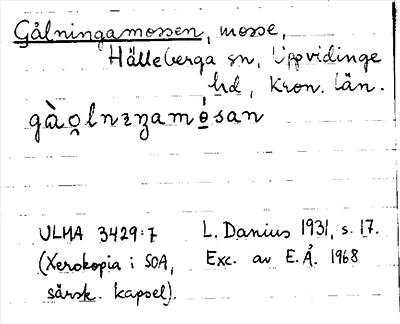 Gålningamossen, mosse,
Hälleberga sn, Uppvidinge
hd, Kron. län.
gàǫlnɪŋamǫ́san
ULMA 3429:7
(Xerokopia i SOA,
särsk. kapsel).
L. Danius 1931, s. 17.
Exc. av E.Å. 1968